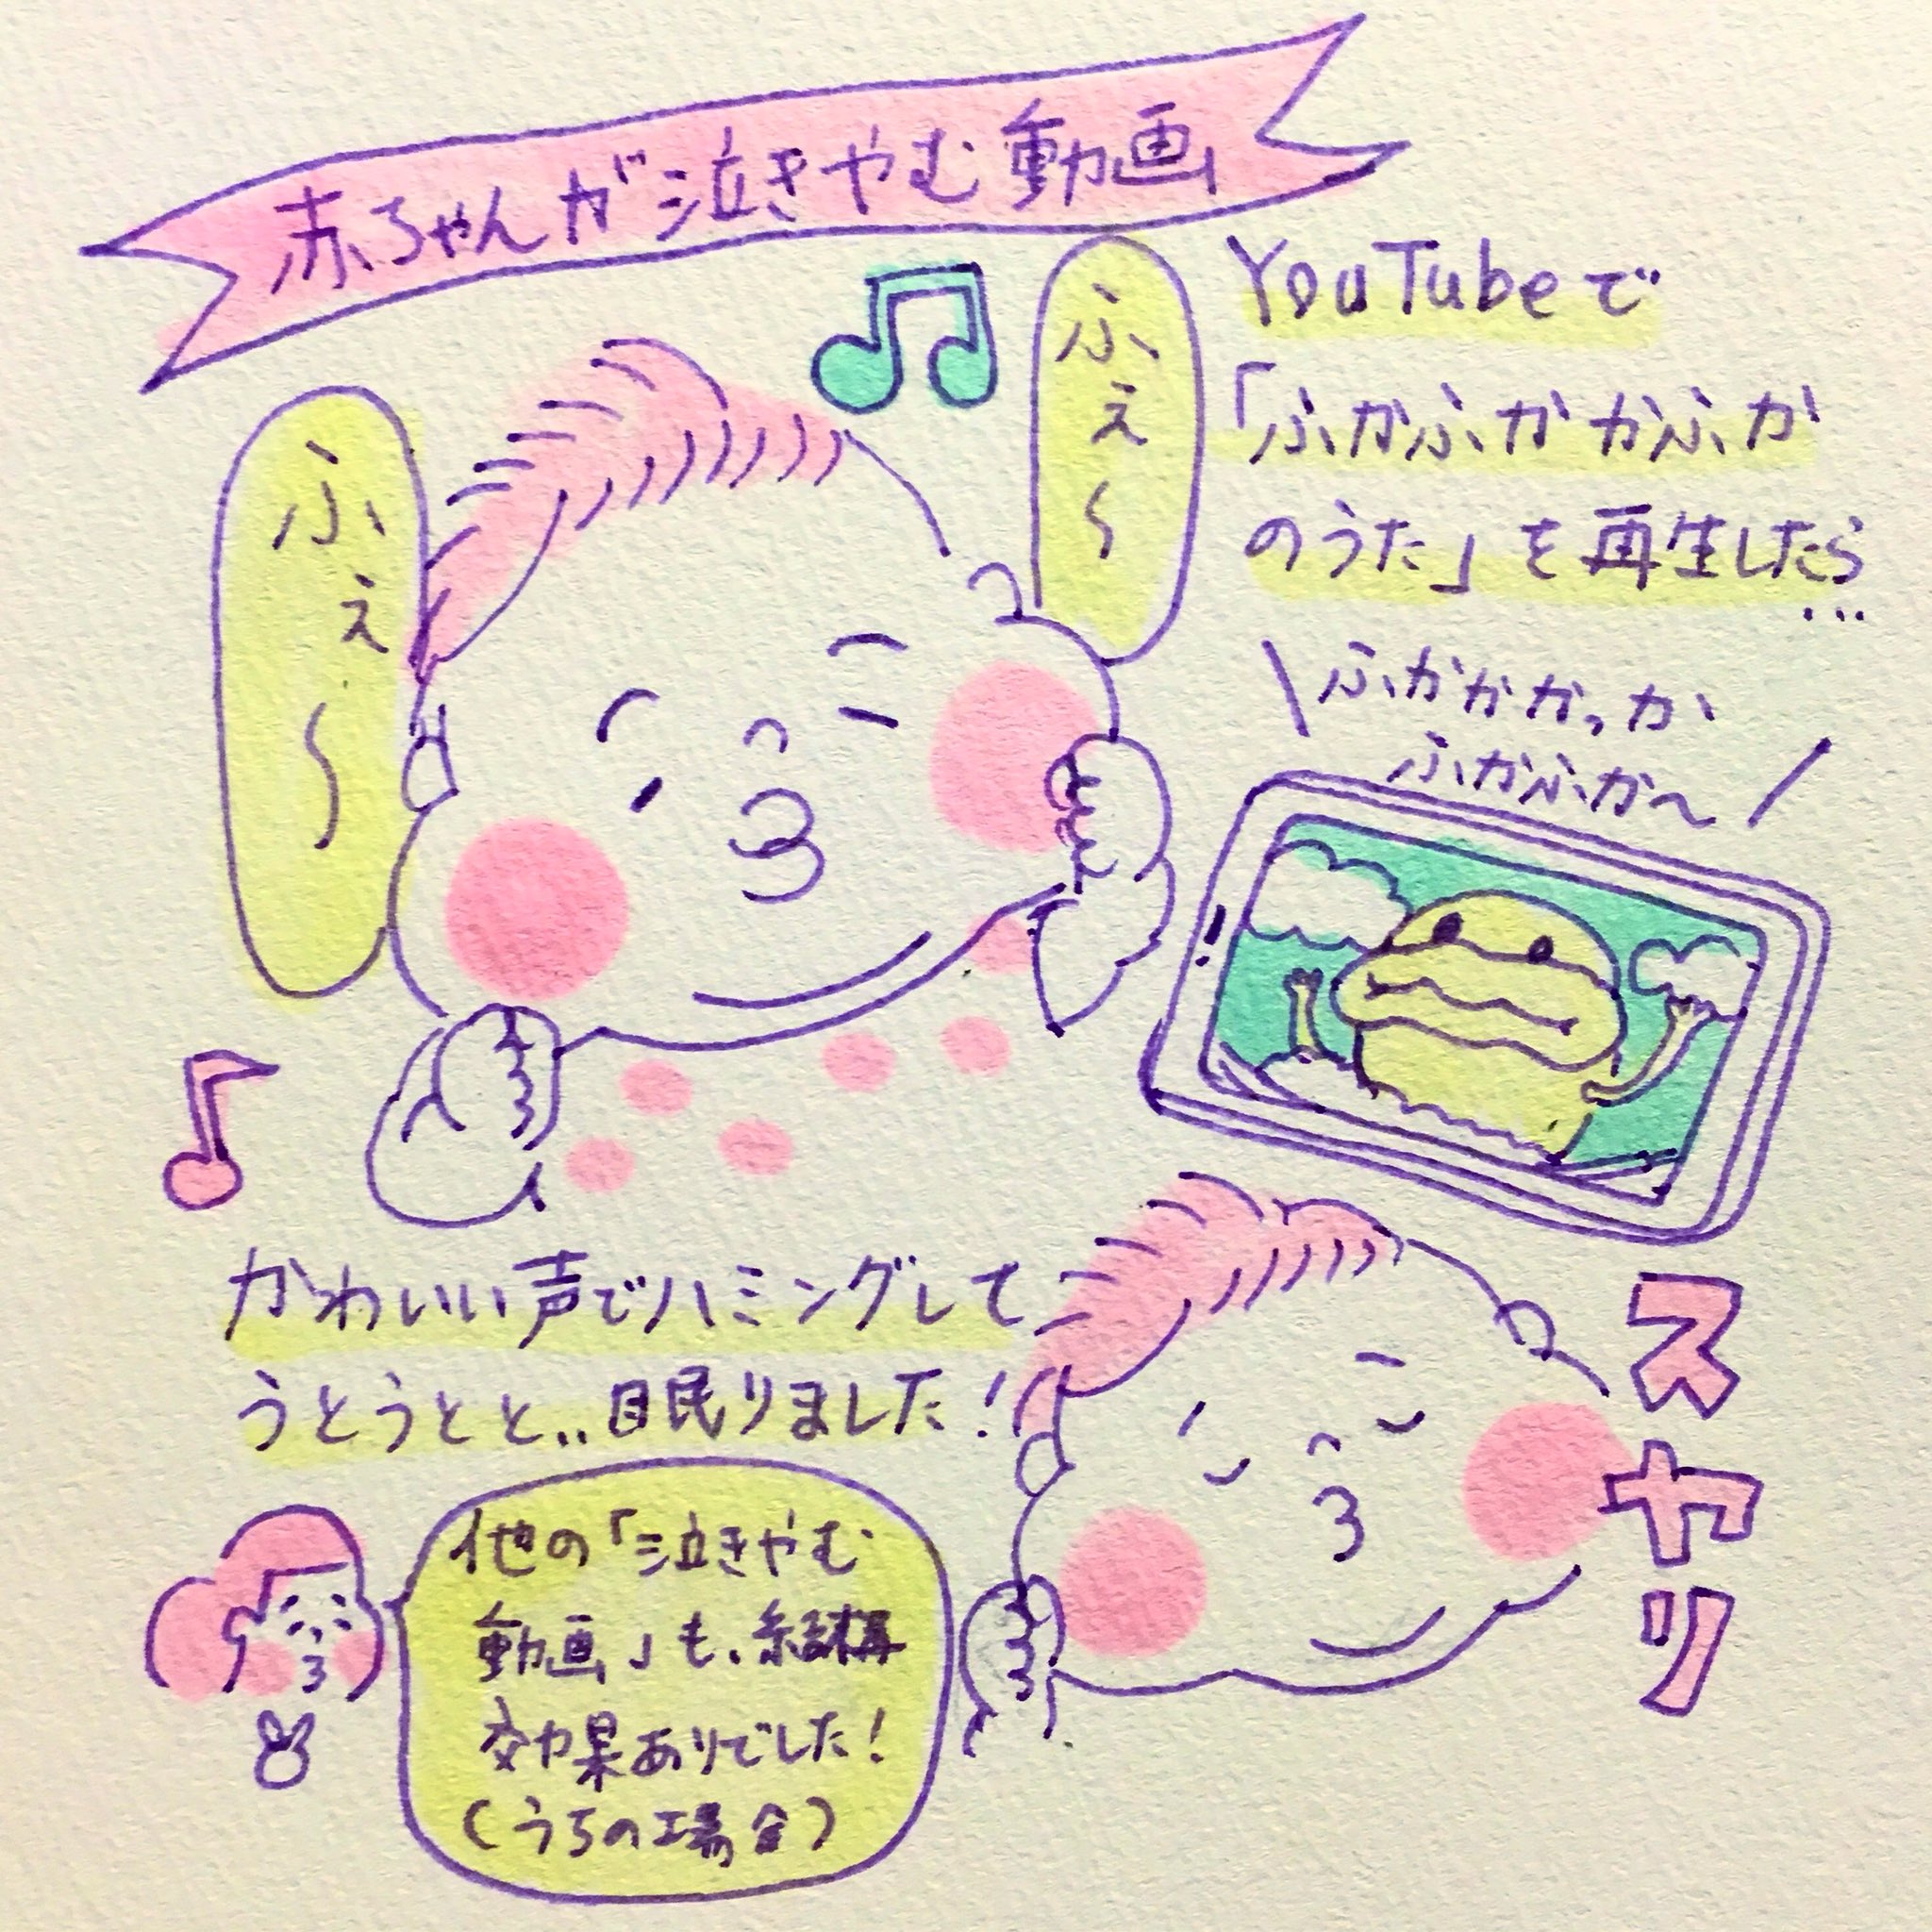 赤ちゃんが泣きやむ動画
YouTubeで
「ふかふかかふか
のうた」を再生したら
…
ふぇ〜
ふぇ〜
ふかかかっか
ふかふか〜
かわいい声でハミングして
うとうとと‥眠りました!
スヤリ
他の「泣きやむ
動画」も、結構
効果ありでした!
(うちの場合)